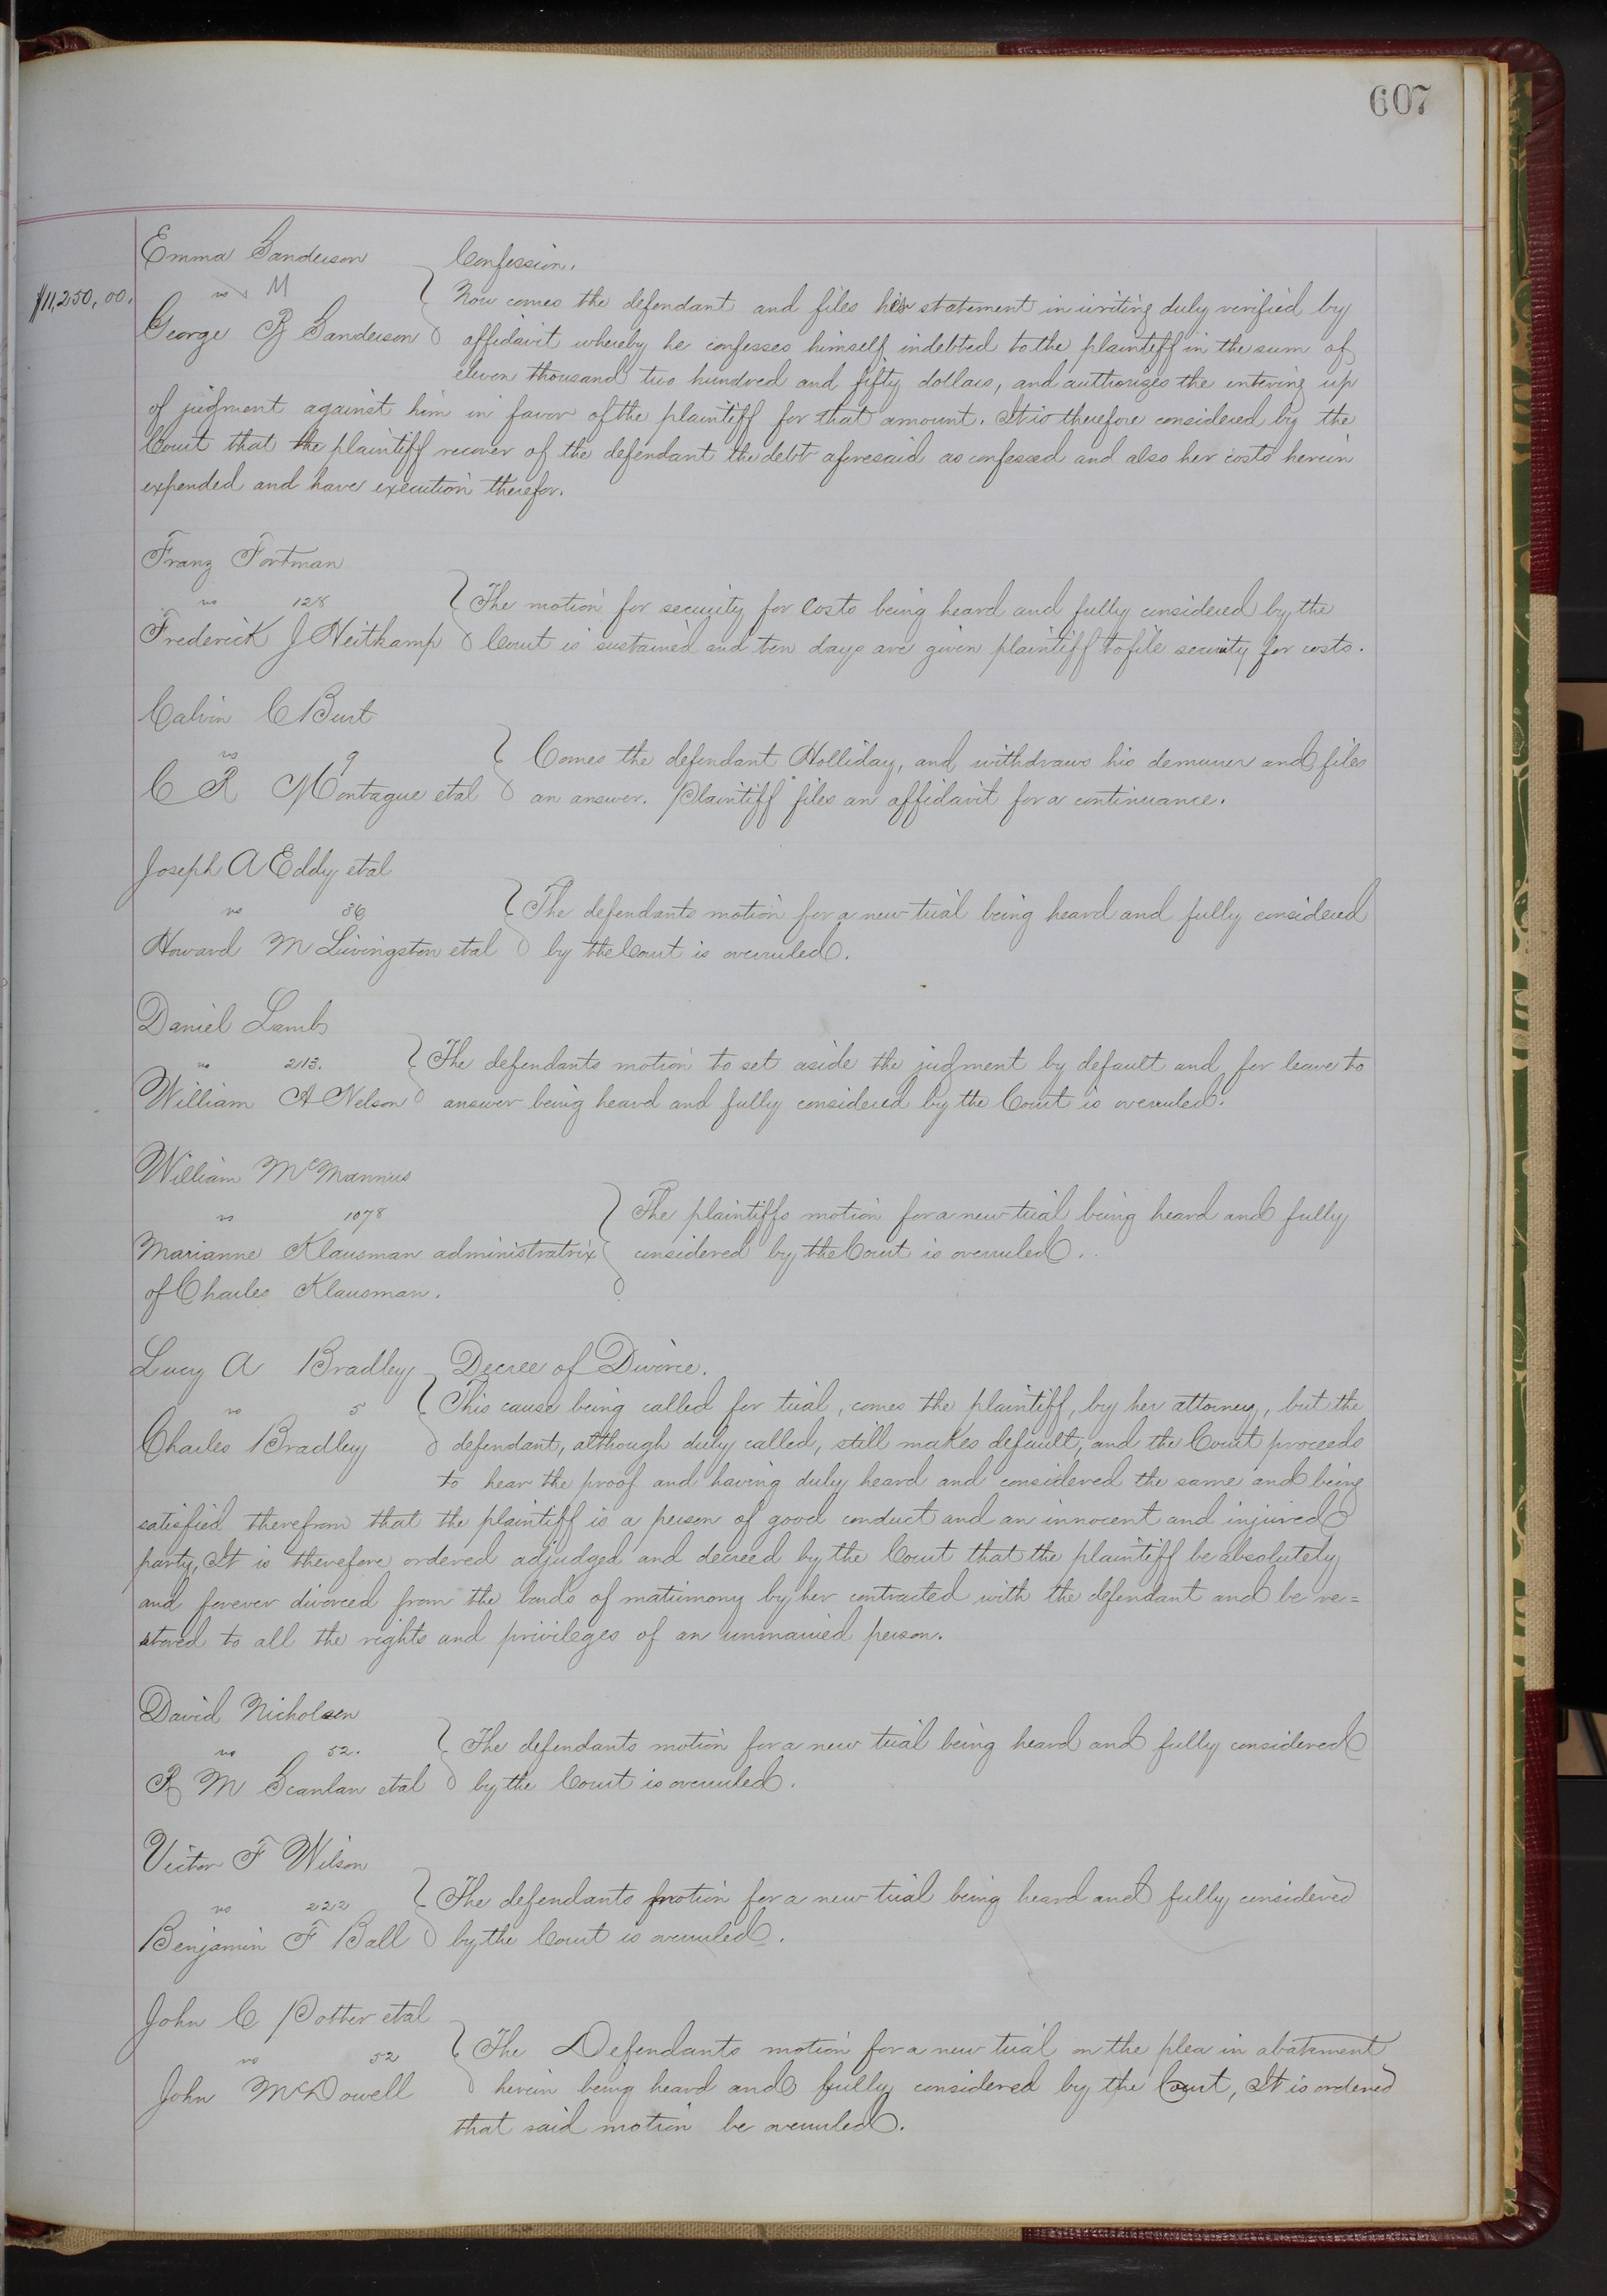 607
Emma Sanderson Confession.
$11,250,00. vs M Now comes the defendant and files his statement in writing duly verified by
George R Sanderson affidavit whereby he confesses himself indebted to the plaintiff in the sum of
eleven thousand two hundred and fifty dollars, and authorizes the entering up
of judgment against him in favor of the plaintiff for that amount. It is therefore considered by the
Court that the plaintiff recover of the defendant the debt aforesaid as confessed and also her costs herein
expended and have execution therefor.
Franz Fortman
vs 128 The motion for security for Costs being heard and fully considered by the
Frederick J Heitkamp Court is sustained and ten days are given plaintiff to file security for costs.
Calvin C Burt
vs 9 Comes the defendant Holliday, and withdraws his demurrer and files
C R Montague etal an answer. Plaintiff files an affidavit for a continuance.
Joseph A Eddy etal
vs 36 The defendants motion for a new trial being heard and fully considered
Howard M Livingston etal by the Court is overruled.
Daniel Lamb
vs 213. The defendants motion to set aside the judgment by default and for leave to
William A Nelson answer being heard and fully considered by the Court is overruled.
William McMannus
vs 1078 The plaintiffs motion for a new trial being heard and fully
Marianne Klausman administratrix considered by the Court is overruled.
of Charles Klausman.
Lucy A Bradley Decree of Divorce.
vs 5 This cause being called for trial, comes the plaintiff, by her attorney, but the
Charles Bradley defendant, although duly called, still makes default, and the Court proceeds
to hear the proof and having duly heard and considered the same and being
satisfied therefrom that the plaintiff is a person of good conduct and an innocent and injured
party, It is therefore ordered adjudged and decreed by the Court that the plaintiff be absolutely
and forever divorced from the bonds of matrimony by her contracted with the defendant and be re=
stored to all the rights and privileges of an unmarried person.
David Nicholson
vs 52. The defendants motion for a new trial being heard and fully considered
R M Scanlan etal by the Court is overruled.
Victor F Wilson
vs 222 The defendants motion for a new trial being heard and fully considered
Benjamin F Ball by the Court is overruled.
John C Potter etal
vs 52 The Defendants motion for a new trial on the plea in abatement
John McDowell herein being heard and fully considered by the Court, It is ordered
that said motion be overruled.